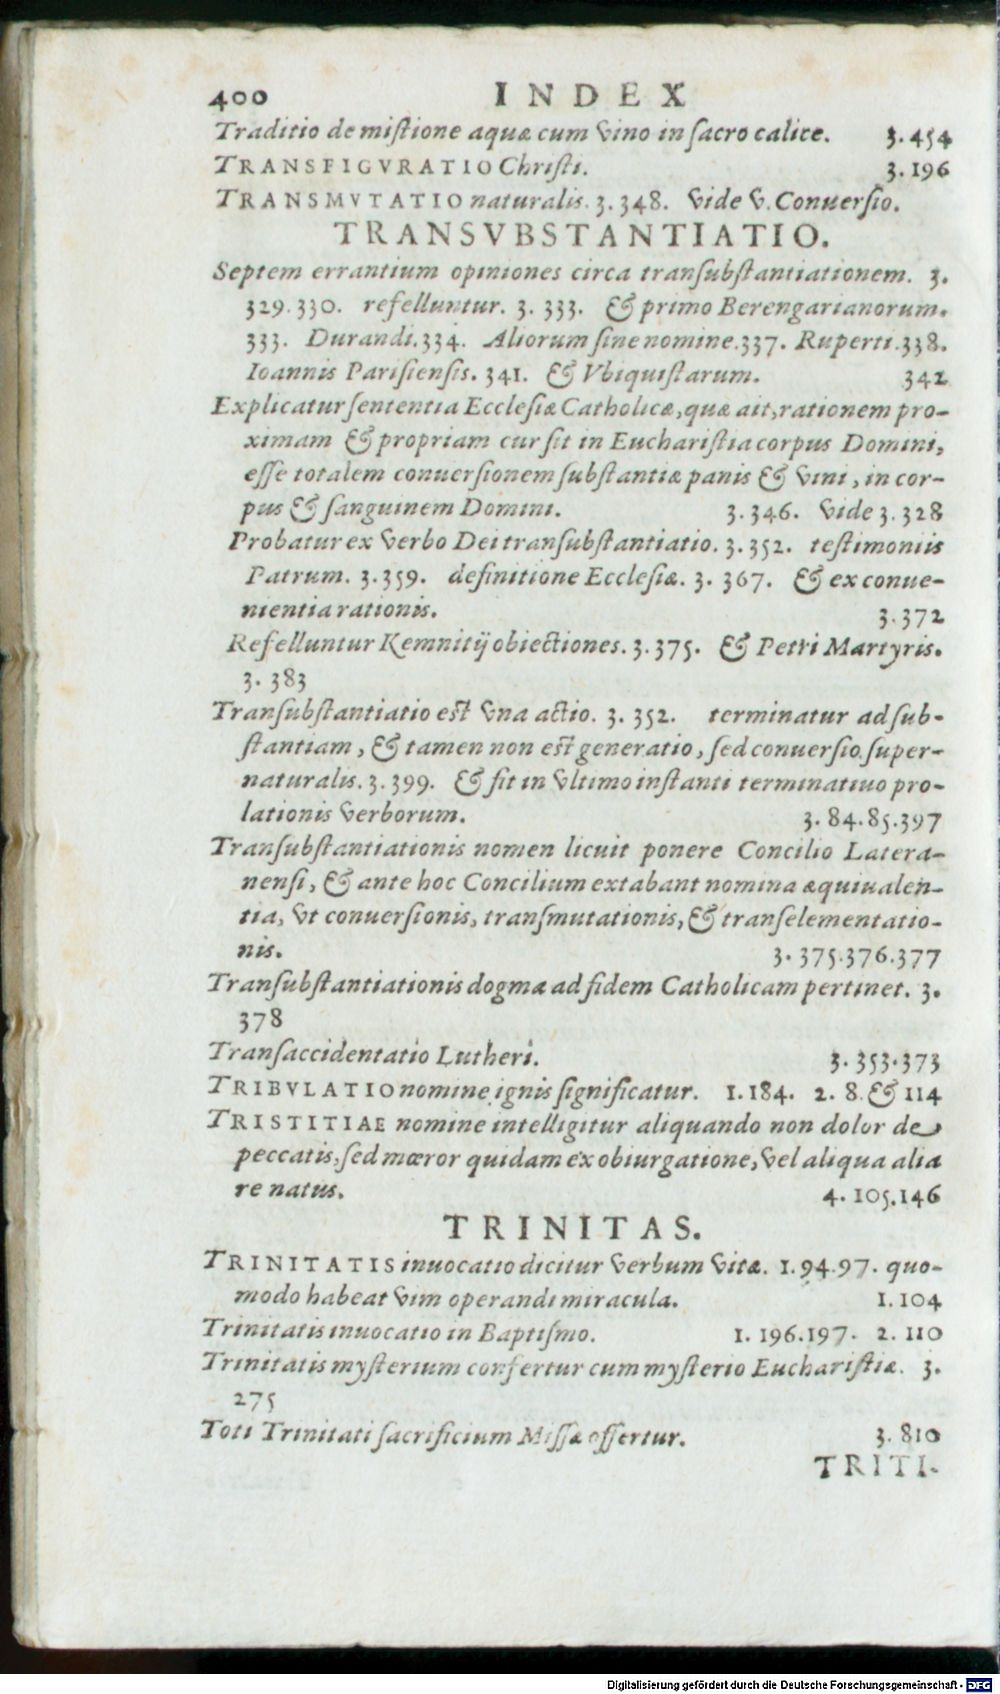 400 INDEX
Traditio de mistione aquæ cum vino in sacro calice. 3.454
TRANSFIGVRATIO Christi. 3.196
TRANSMVTATIO naturalis. 3.348. vide v. Conuersio.
TRANSVBSTANTIATIO.
Septem errantium opiniones circa transubstantiationem. 3.
329.330. refelluntur. 3. 333. & primo Berengarianorum.
333. Durandi.334. Aliorum sine nomine.337. Ruperti.338.
Ioannis Parisiensis. 341. & Vbiquistarum. 342
Explicatur sententia Ecclesiæ Catholicæ, quæ ait, rationem pro-
ximam & propriam cur sit in Eucharistia corpus Domini,
esse totalem conuersionem substantiæ panis & vini, in cor-
pus & sanguinem Domini. 3.346. vide 3.328
Probatur ex verbo Dei transubstantiatio. 3.352. testimoniis
Patrum. 3.359. definitione Ecclesiæ. 3. 367. & ex conue-
nientia rationis. 3.372
Refelluntur Kemnitij obiectiones. 3.375. & Petri Martyris.
3. 383
Transubstantiatio est vna actio. 3. 352. terminatur ad sub-
stantiam, & tamen non est generatio, sed conuersio super-
naturalis. 3. 399. & fit in vltimo instanti terminatiuo pro-
lationis verborum. 3. 84.85.397
Transubstantiationis nomen licuit ponere Concilio Latera-
nensi, & ante hoc Concilium extabant nomina æquiualen-
tia, vt conuersionis, transmutationis, & transelementatio-
nis. 3. 375.376.377
Transubstantiationis dogma ad fidem Catholicam pertinet. 3.
378
Transaccidentatio Lutheri. 3. 353.373
TRIBVLATIO nomine ignis significatur. 1.184. 2. 8. & 114
TRISTITIAE nomine intelligitur aliquando non dolor de
peccatis, sed mœror quidam ex obiurgatione, vel aliqua alia
re natus. 4. 105.146
TRINITAS.
TRINITATIS inuocatio dicitur verbum vitæ. 1.94.97. quo-
modo habeat vim operandi miracula. 1.104
Trinitatis inuocatio in Baptismo. 1. 196.197. 2. 110
Trinitatis mysterium confertur cum mysterio Eucharistiæ. 3.
275
Toti Trinitati sacrificium Missæ offertur. 3. 810
TRITI-
Digitalisierung gefördert durch die Deutsche Forschungsgemeinschaft - DFG